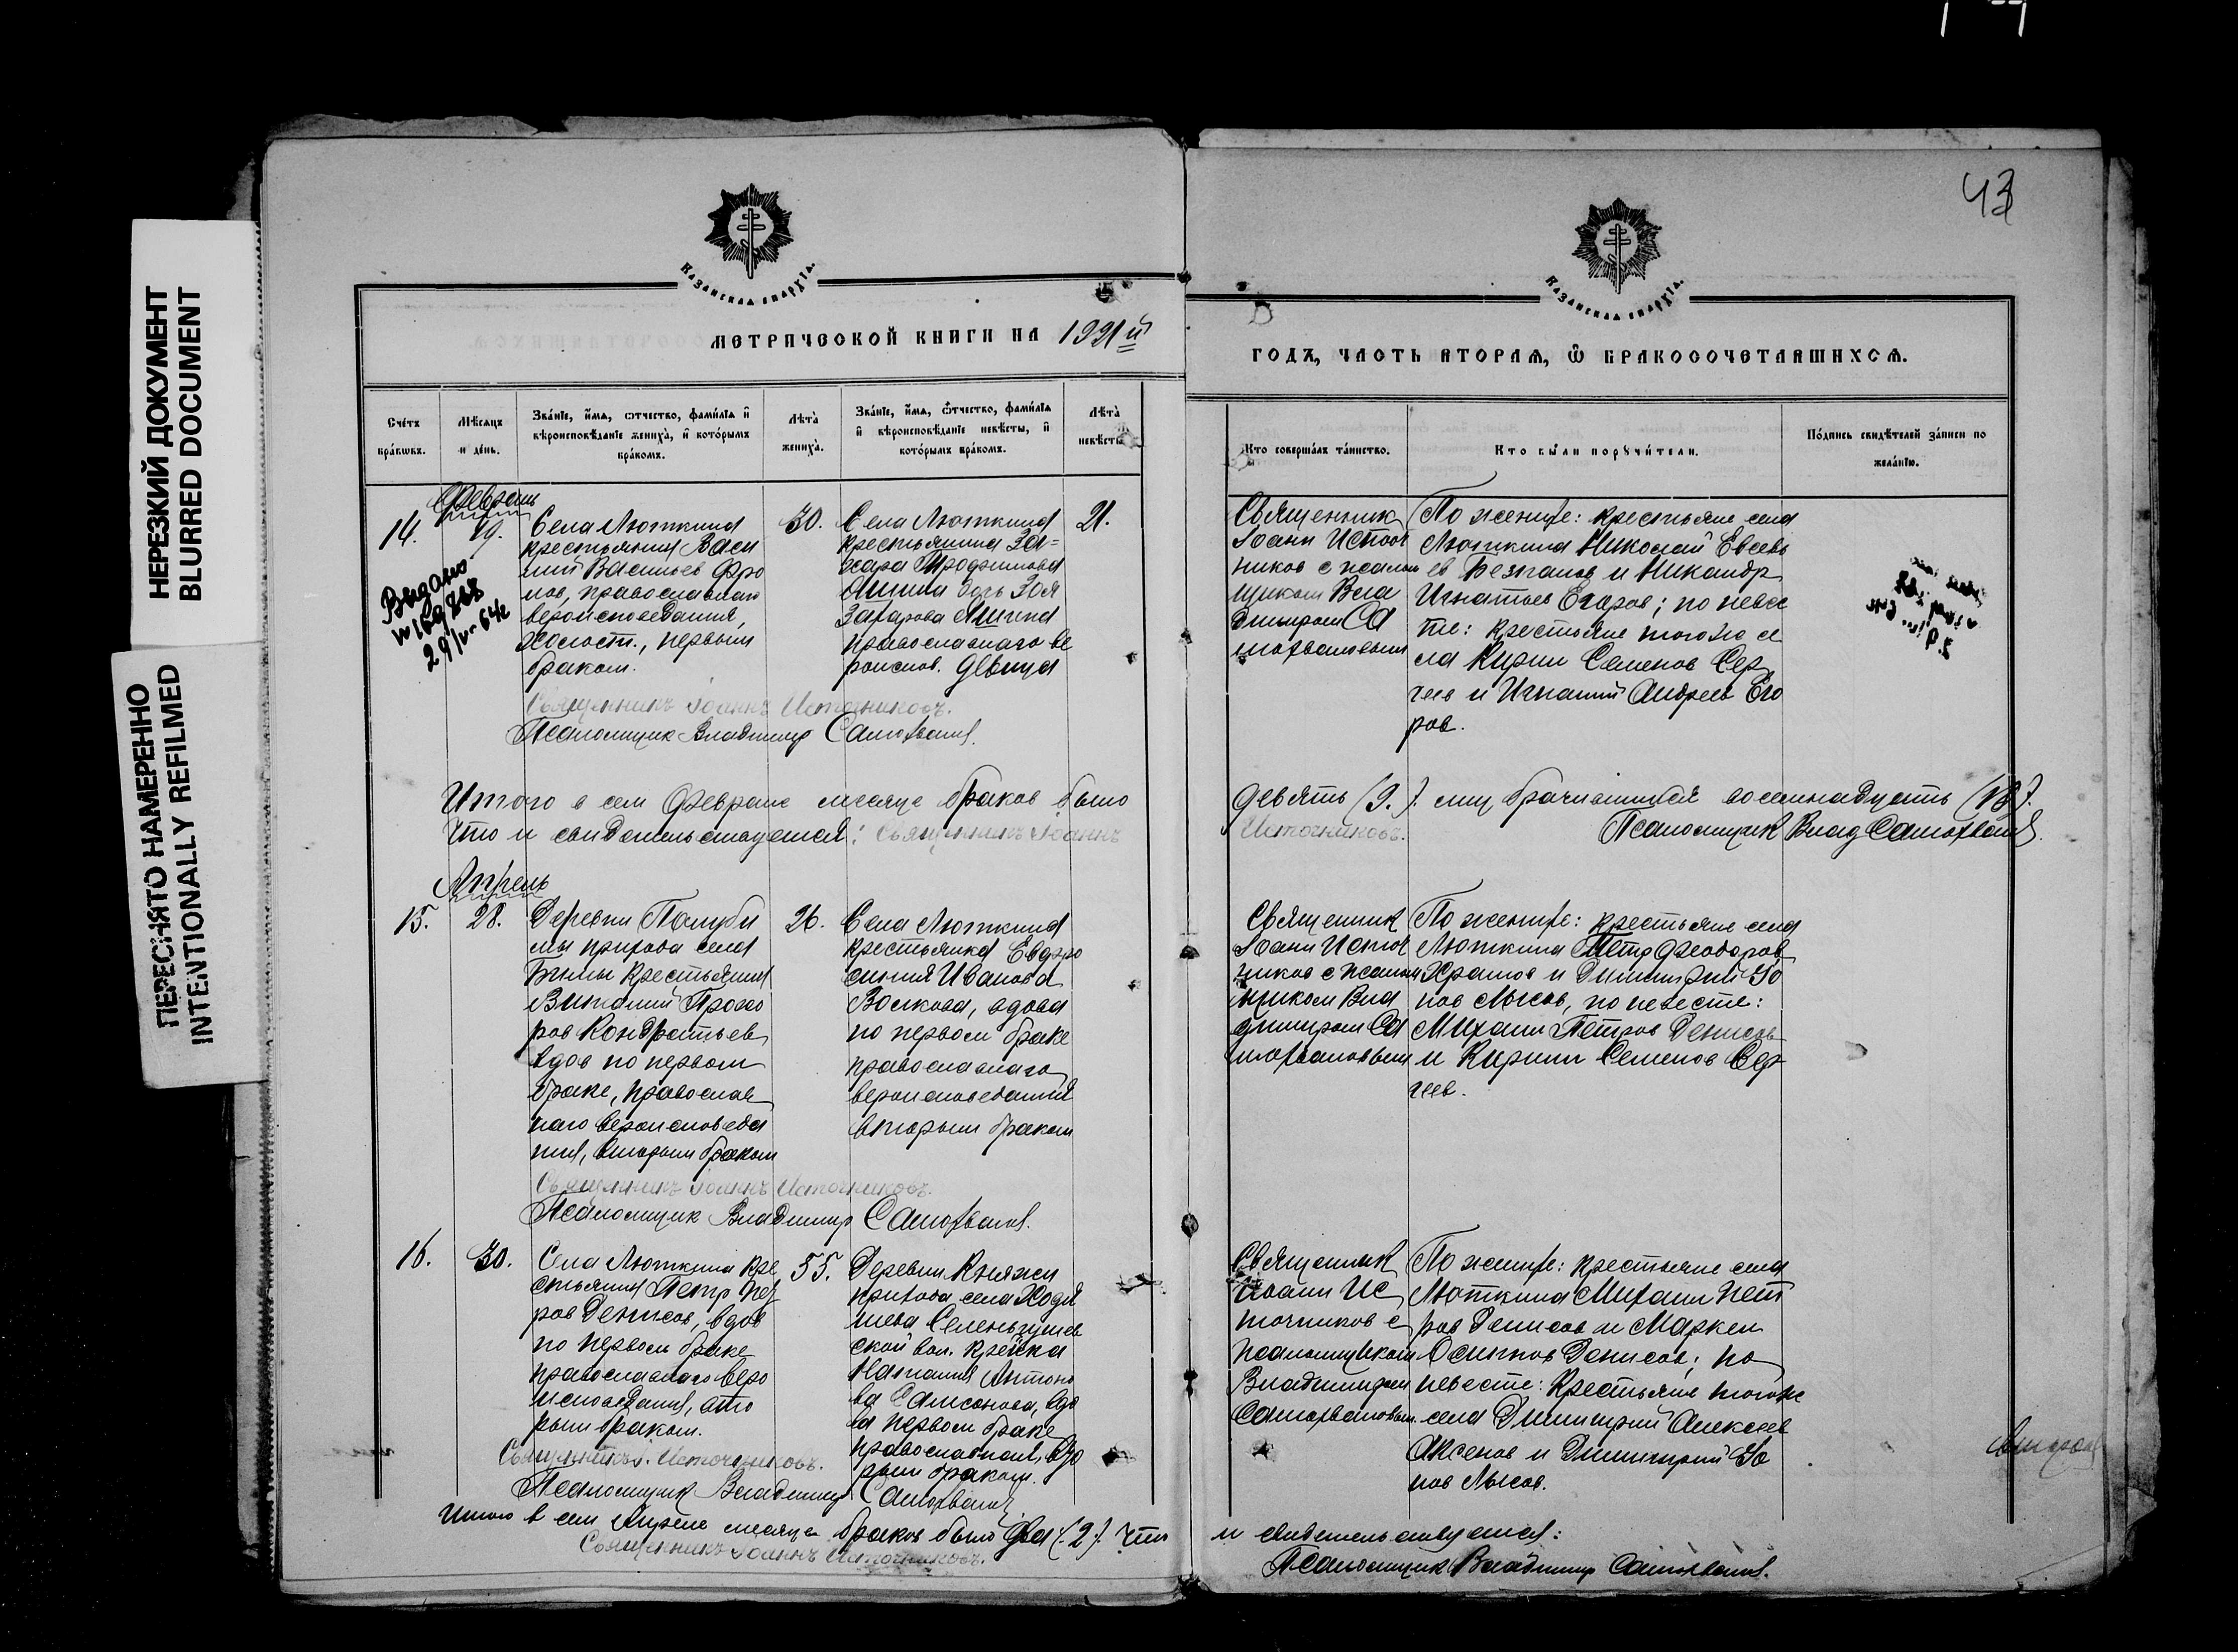 НЕРЕЗКИЙ ДОКУМЕНТ
BLURRED DOCUMENT
ПЕРЕСНЯТО НАМЕРЕННО
INTENTIONALLY REFILMED
43
КАЗАНСКАЯ ЕПАРХІЯ.
КАЗАНСКАЯ ЕПАРХІЯ.
МЕТРИЧЕСКОЙ КНИГИ НА 1921й
ГОДЪ, ЧАСТЬ ВТОРАЯ, Ѡ БРАКОСОЧЕТАВШИХСЯ.
Счетъ браковъ.
Мѣсяцъ и день.
Званіе, имя, отчество, фамилія и вѣроисповѣданіе жениха, и которымъ бракомъ.
Лѣта жениха.
Званіе, имя, отчество, фамилія и вѣроисповѣданіе невѣсты, и которымъ бракомъ.
Лѣта невѣсты
Кто совершалъ таинство.
Кто были поручители.
Подпись свидѣтелей записи по желанію.
Февраль
14. 19.
Села Люткина
крестьянин Васи
лий Васильев Фро
лов, православнаго
вероисповедания,
холост., первым
браком.
30.
Села Люткина
крестьянина За=
хара Трофимова
дочь Зоя
Захарова
православнаго ве
роиспов. девица
21.
Священник
Иоанн Источ
ников с псалом
щиком Вла
димиром Са
мохваловым
По женихе: крестьяне села
Люткина Николай Евсевь
ев и Никандр
Игнатьев Егоров; по невес
те: крестьяне того же се
ла Кирил Семенов Сер
геев и Игнатий Андреев Его
ров.
Выдано
Священникъ Іоаннъ Источниковъ.
Псаломщик Владимир Самохвалов.
Итого в сем Феврале месяце браков было
девять (9.). лиц брачившихся восемнадцать (18).
Что и свидетельствуется: Священникъ Іоаннъ
Источниковъ.
Псаломщик Влад Самохвалов.
Апрель
15. 28.
Деревни
мы прихода села
крестьянин
Виталий Прохо
ров Кондратьев
вдов по первом
браке, православ
наго вероисповеда
ния, вторым браком
26.
Села Люткина
крестьянка Евдро
синия Иванова
Волкова, вдова
по первом браке
православнаго
вероисповедания
вторым браком
Священник
Иоанн Источ
ников с псалом
щиком Вла
димиром Са
мохваловым
По женихе: крестьяне села
Люткина Петр Феодоров
Храмов и Димитрий Ио
нов Лысов, по невесте:
Михаил Петров Денисов
и Кирилл Семенов Сер
геев.
Священникъ Іоаннъ Источниковъ.
Псаломщик Владимир Самохвалов.
16. 30.
Села Люткина кре
стьянин Петр Пет
ров Денисов, вдов
по первом браке
православнаго веро
исповедания, вто
рым браком.
55.
Деревни Княжи
прихода села Ходя
шева
ской вол. кре-ка
Наталия Антоно
ва Самсонова, вдо
ва первом браке
православная, вто
рым браком.
Священник
Иоанн Ис
точников с
псаломщиком
Владимиром
Самохваловым.
По женихе: крестьяне села
Люткина Михаил Пет
ров Денисов и Маркел
Осипов Денисов; по
невесте: крестьяне того же
села Димитрий Алексеев
Аксенов и Димитрий Ио
нов Лысов.
Священникъ І. Источниковъ.
Псаломщик Владимир Самохвалов
Итого в сем Апреле месяце браков было два (2.). Что
и свидетельствуется:
Священникъ Іоаннъ Источниковъ.
Псаломщик Владимир Самохвалов.